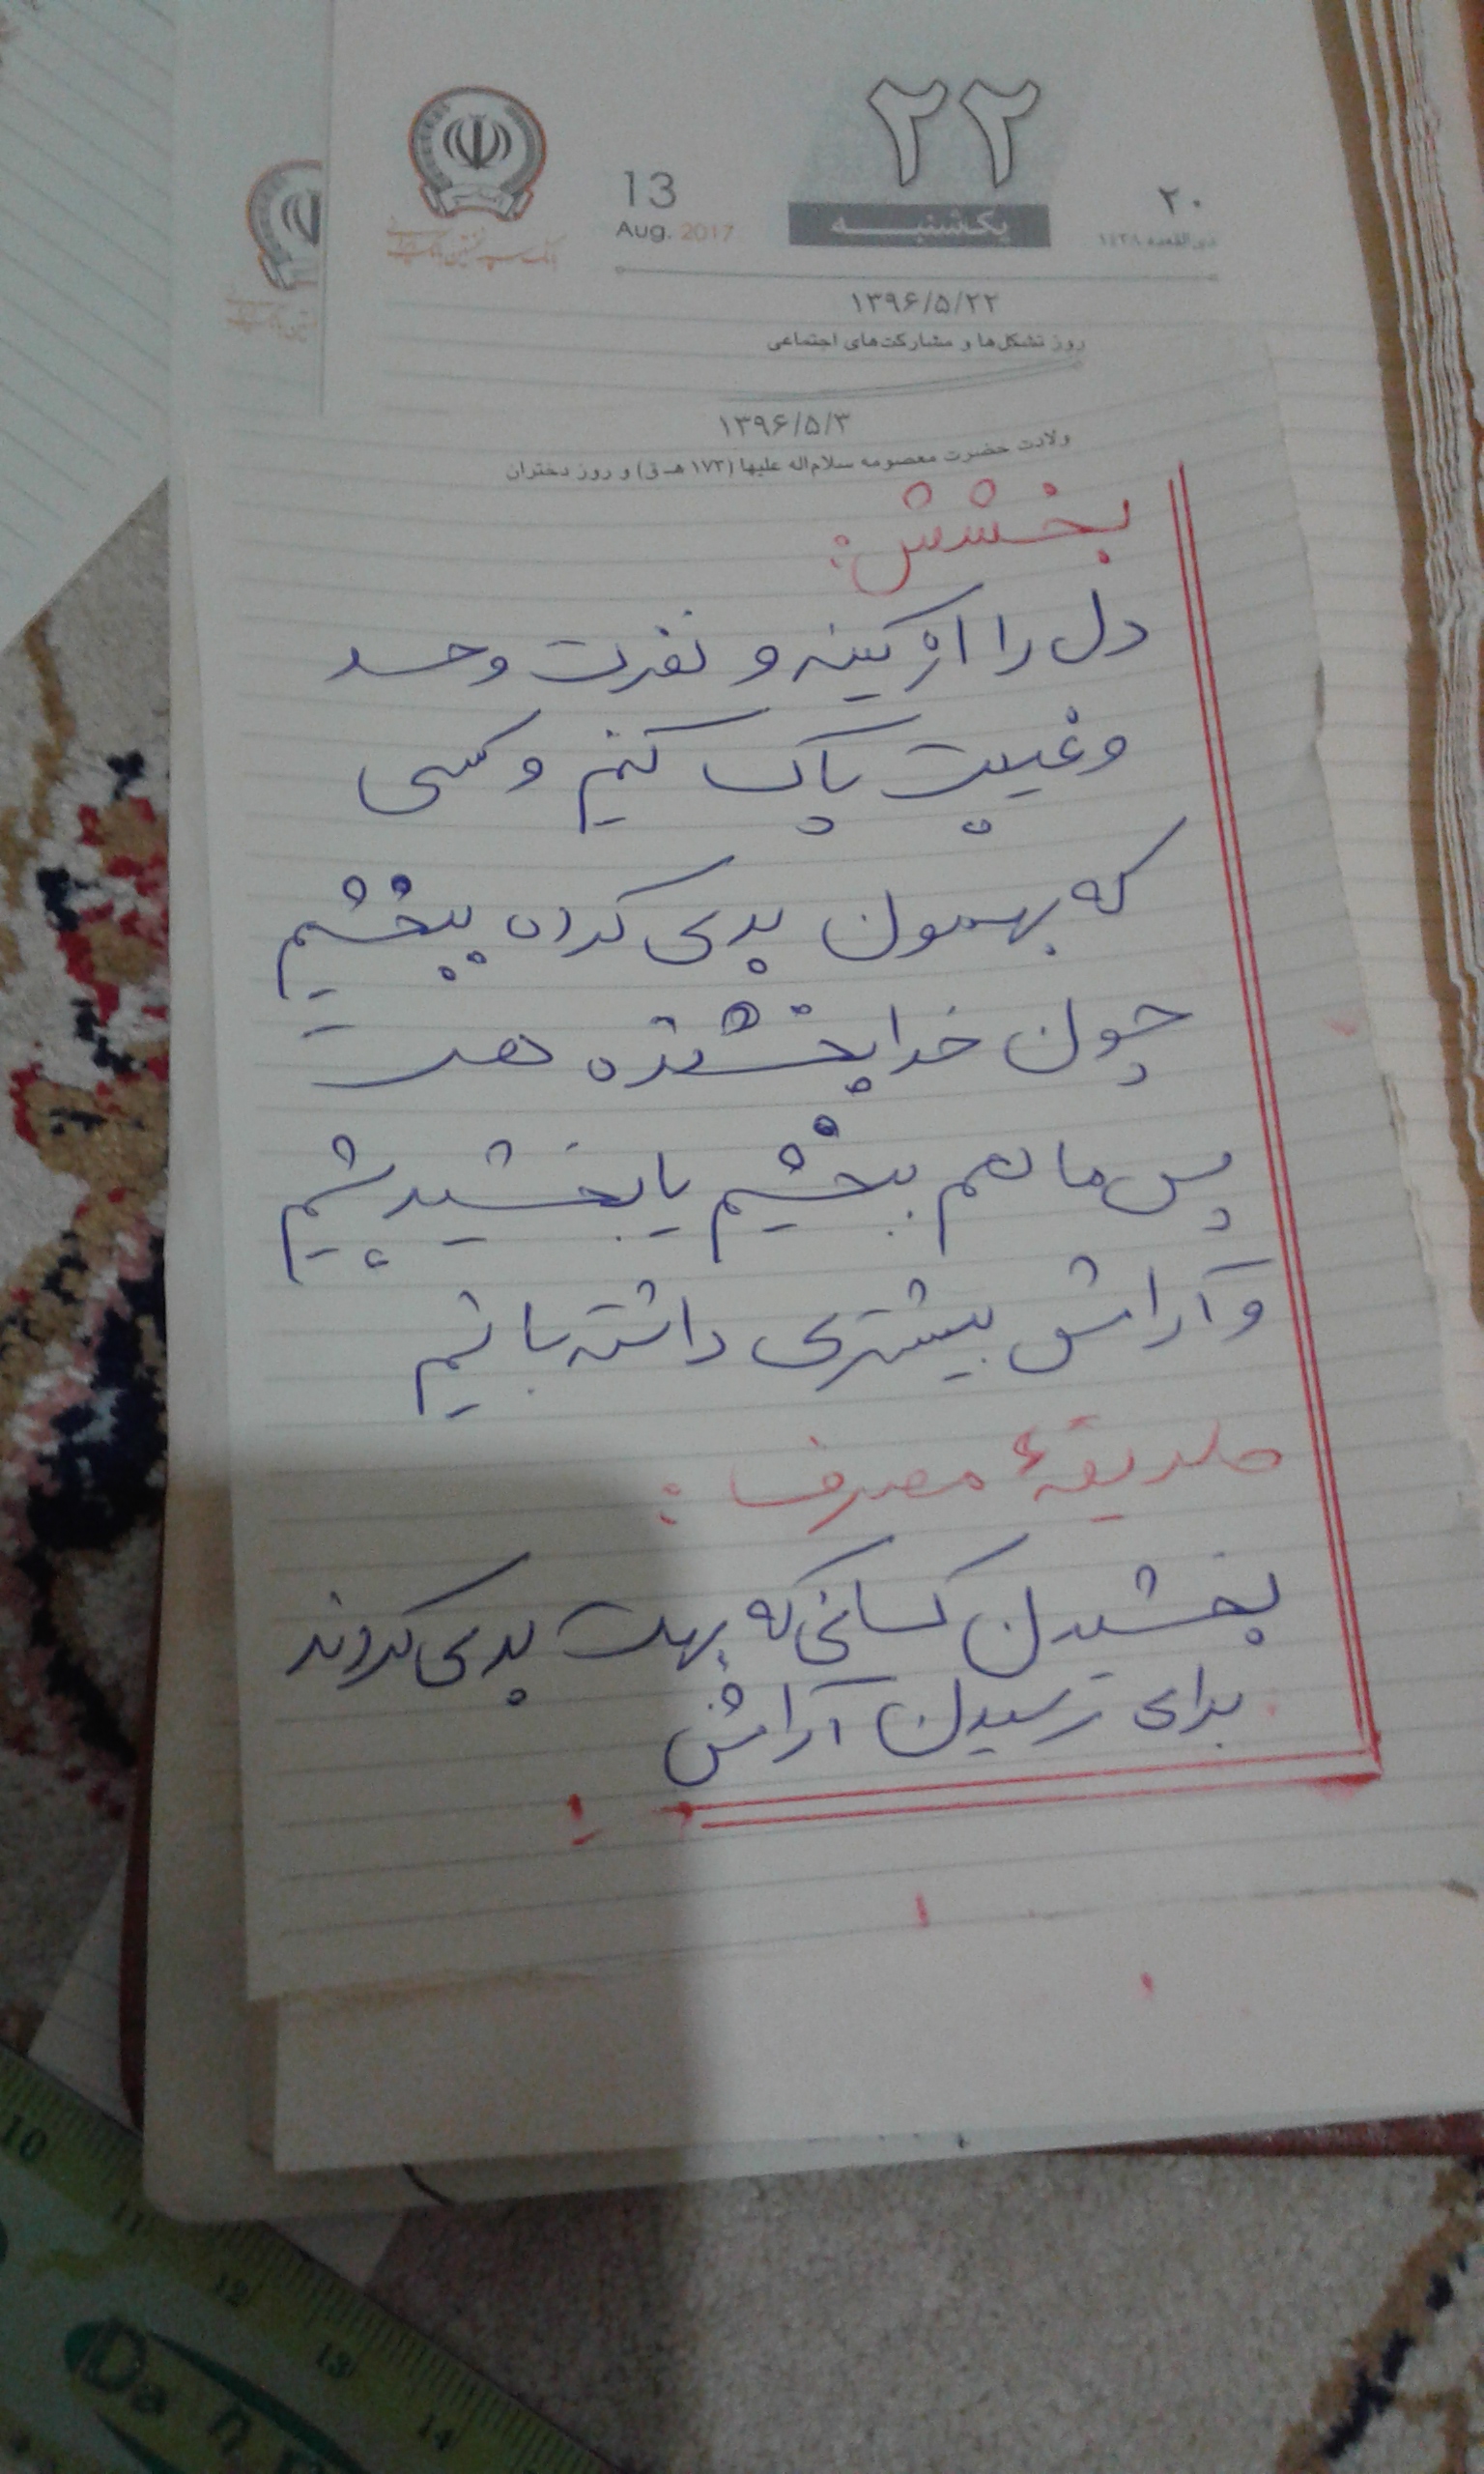 ۲۲
13
Aug. 2017
یکشنبه
۲۰
ذی‌القعده ۱۴۳۸
۱۳۹۶/۵/۲۲
روز تشکل‌ها و مشارکت‌های اجتماعی
۱۳۹۶/۵/۳
ولادت حضرت معصومه سلام‌اله علیها (۱۷۳ هـ ق) و روز دختران
بخشش:
دل را از کینه و نفرت و حسد
و غیبت پاک کنیم و کسی
که بهمون بدی کرده ببخشیم
چون خدا بخشنده هست
پس ما هم ببخشیم یا بخشیده شیم
و آرامش بیشتری داشته باشیم
طریقهٔ مصرف:
بخشیدن کسانی که بهت بدی کردند
برای رسیدن آرامش
10
11
12
13
14